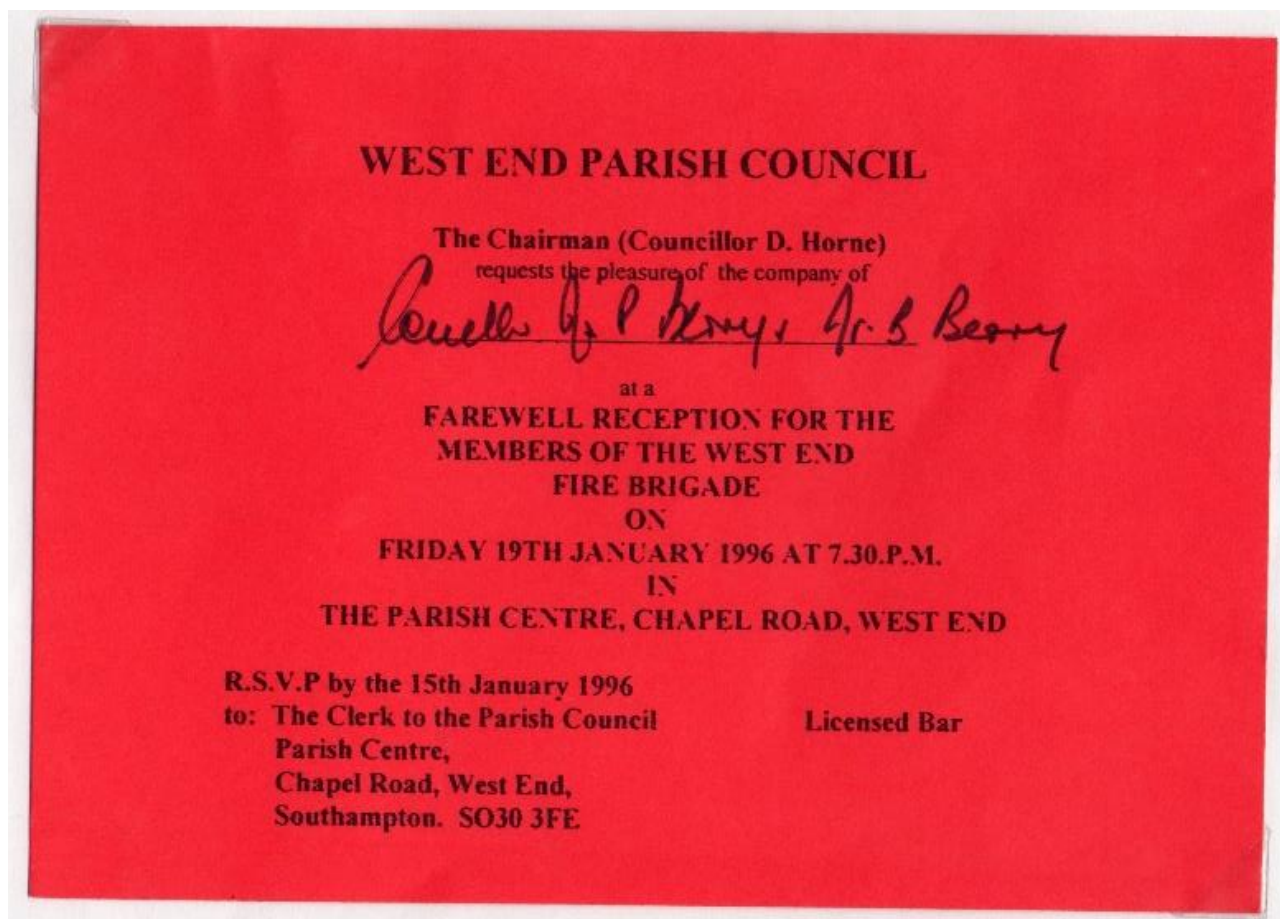 WEST END PARISH COUNCIL
The Chairman (Councillor D. Horne)
requests the pleasure of the company of
P B Berry
at a
FAREWELL RECEPTION FOR THE
MEMBERS OF THE WEST END
FIRE BRIGADE
ON
FRIDAY 19TH JANUARY 1996 AT 7.30.P.M.
IN
THE PARISH CENTRE, CHAPEL ROAD, WEST END
R.S.V.P by the 15th January 1996
to: The Clerk to the Parish Council Licensed Bar
Parish Centre,
Chapel Road, West End,
Southampton. SO30 3FE